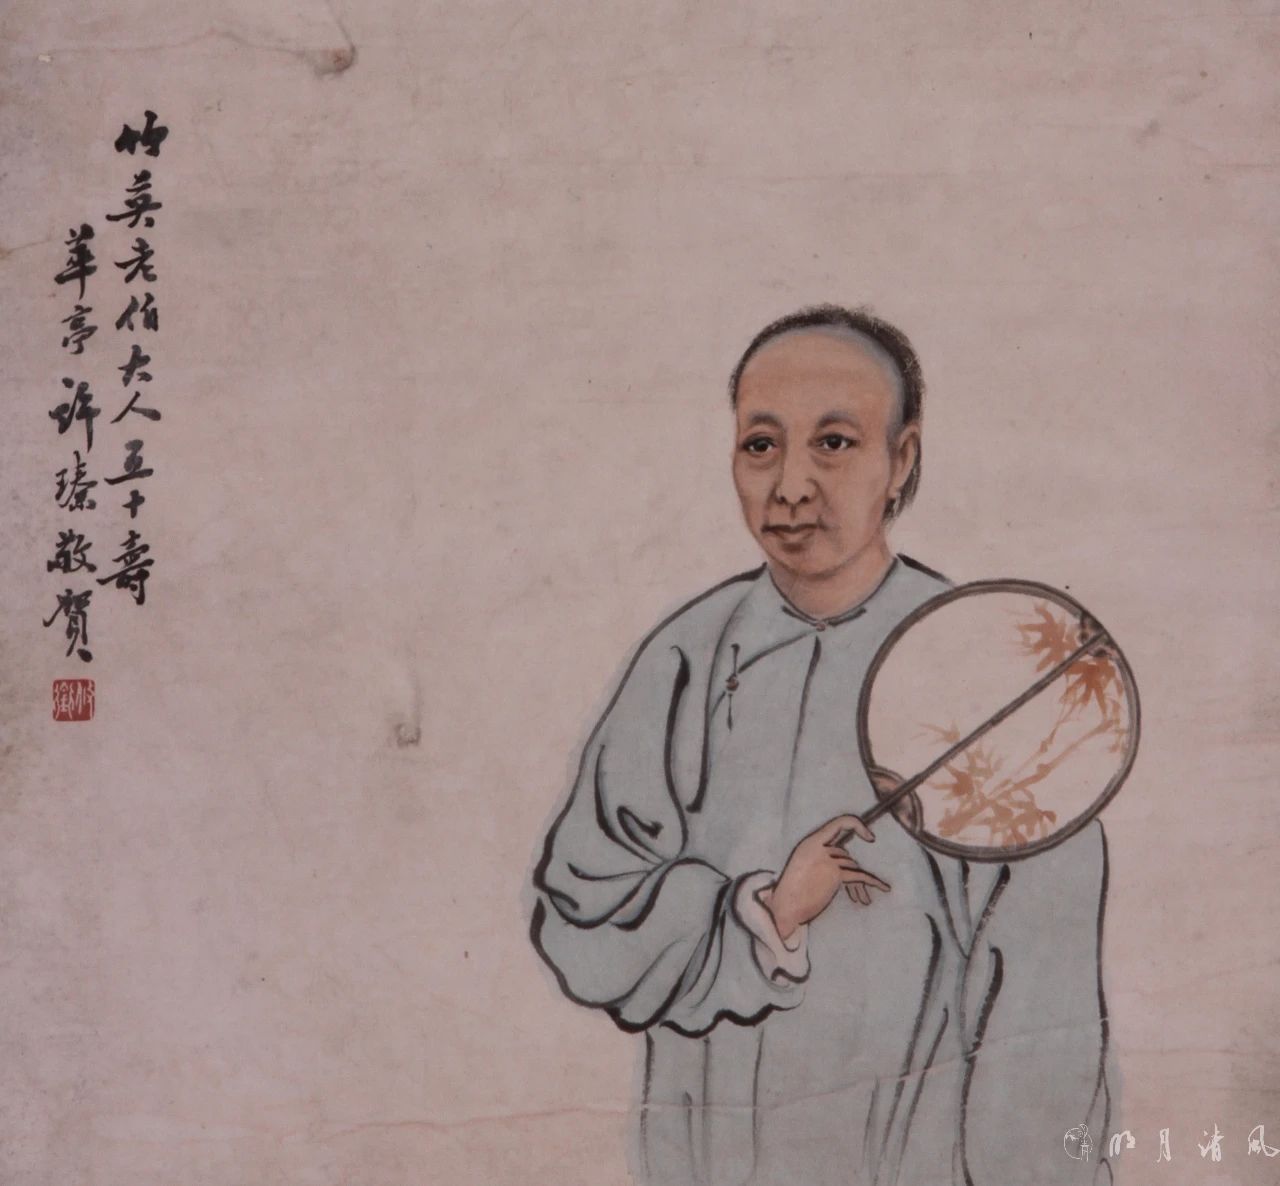 竹英老伯大人五十壽
華亭許瑧敬賀
明月清風